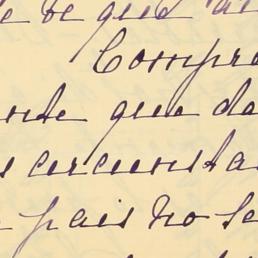 se que
Compre
nte que da
s circunsta
pais no se